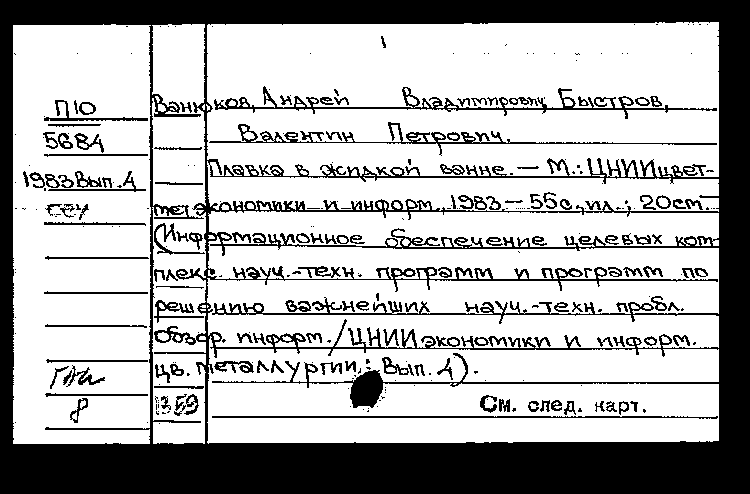 1
П10
Ванюков, Андрей Владимирович, Быстров,
5684
Валентин Петрович.
Плавка в жидкой ванне. — М.: ЦНИИцвет-
1983 Вып. 4
мет экономики и информ., 1983. — 55 с., ил.; 20 см.
(Информационное обеспечение целевых ком-
плекс. науч.-техн. программ и программ по
решению важнейших науч.-техн. пробл.
Обзор. информ. / ЦНИИ экономики и информ.
цв. металлургии; Вып. 4).
8
См. след. карт.